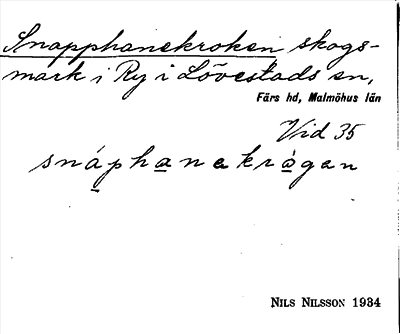 Snapphanekroken skogs-
mark i Ry i Lövestads sn,
Färs hd, Malmöhus län
Vid 35
snáphanekrågen
NILS NILSSON 1934